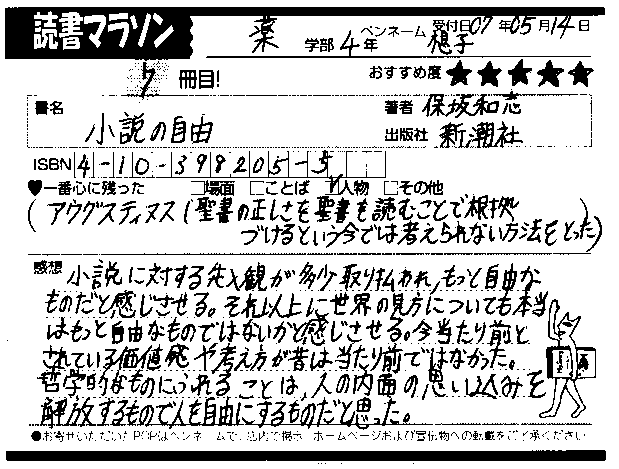 読書マラソン 薬 学部 4年 ペンネーム 想子 受付日07年05月14日
7 冊目! おすすめ度 ★★★★★
書名 小説の自由
著者 保坂和志
出版社 新潮社
ISBN 4-10-398205-5
♥一番心に残った □場面 □ことば ☑人物 □その他
(アウグスティヌス(聖書の正しさを聖書を読むことで根拠
づけるという今では考えられない方法をとった)
感想 小説に対する先入観が多少取り払われ、もっと自由な
ものだと感じさせる。それ以上に世界の見方についても本当
はもっと自由なものではないかと感じさせる。今当たり前と
されている価値感や考え方が昔は当たり前ではなかった。
哲学的なものにふれることは、人の内面の思い込みを
解放するもので人を自由にするものだと思った。
●お寄せいただいたPOPはペンネームで、店内で掲示、ホームページおよび宣伝物への転載をご了承ください